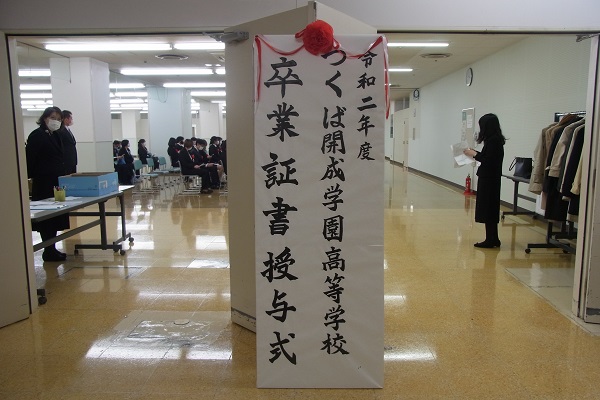 令和二年度
つくば開成学園高等学校
卒業証書授与式